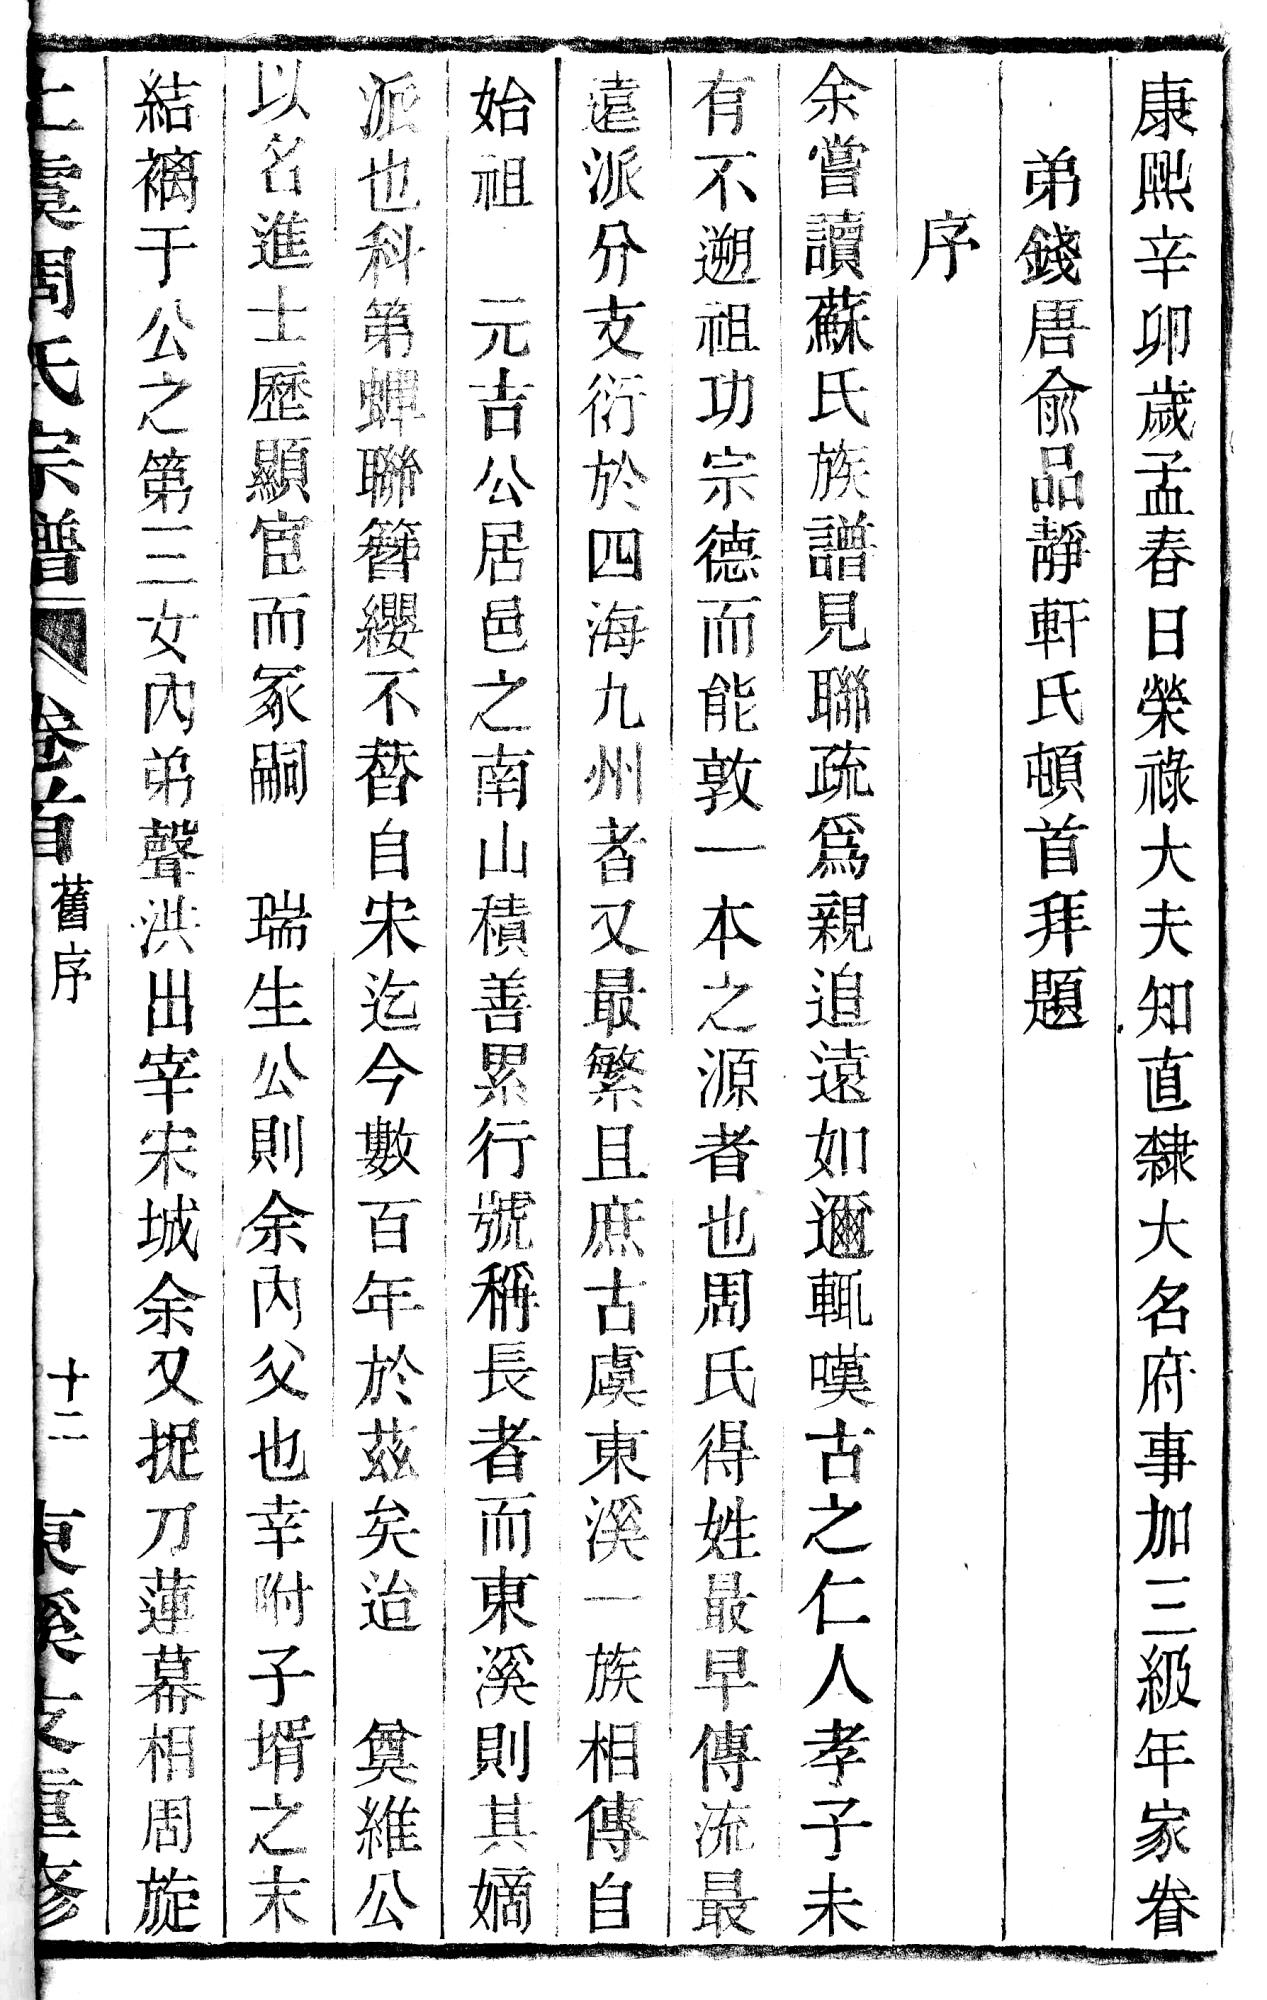 康熙辛卯歲孟春日榮祿大夫知直隸大名府事加三級年家眷
弟錢唐俞品靜軒氏頓首拜題
序
余嘗讀蘇氏族譜見聯疏爲親追遠如邇輒嘆古之仁人孝子未
有不遡祖功宗德而能敦一本之源者也周氏得姓最早傳流最
遠派分支衍於四海九州者又最繁且庶古虞東溪一族相傳自
始祖　元吉公居邑之南山積善累行號稱長者而東溪則其嫡
派也科第蟬聯簪纓不替自宋迄今數百年於茲矣迨　奠維公
以名進士歷顯宦而冢嗣　瑞生公則余內父也幸附子壻之末
結褵于公之第三女內弟聲洪出宰宋城余又捉刀蓮幕相周旋
上虞周氏宗譜　卷首　舊序　十二　東溪支重修